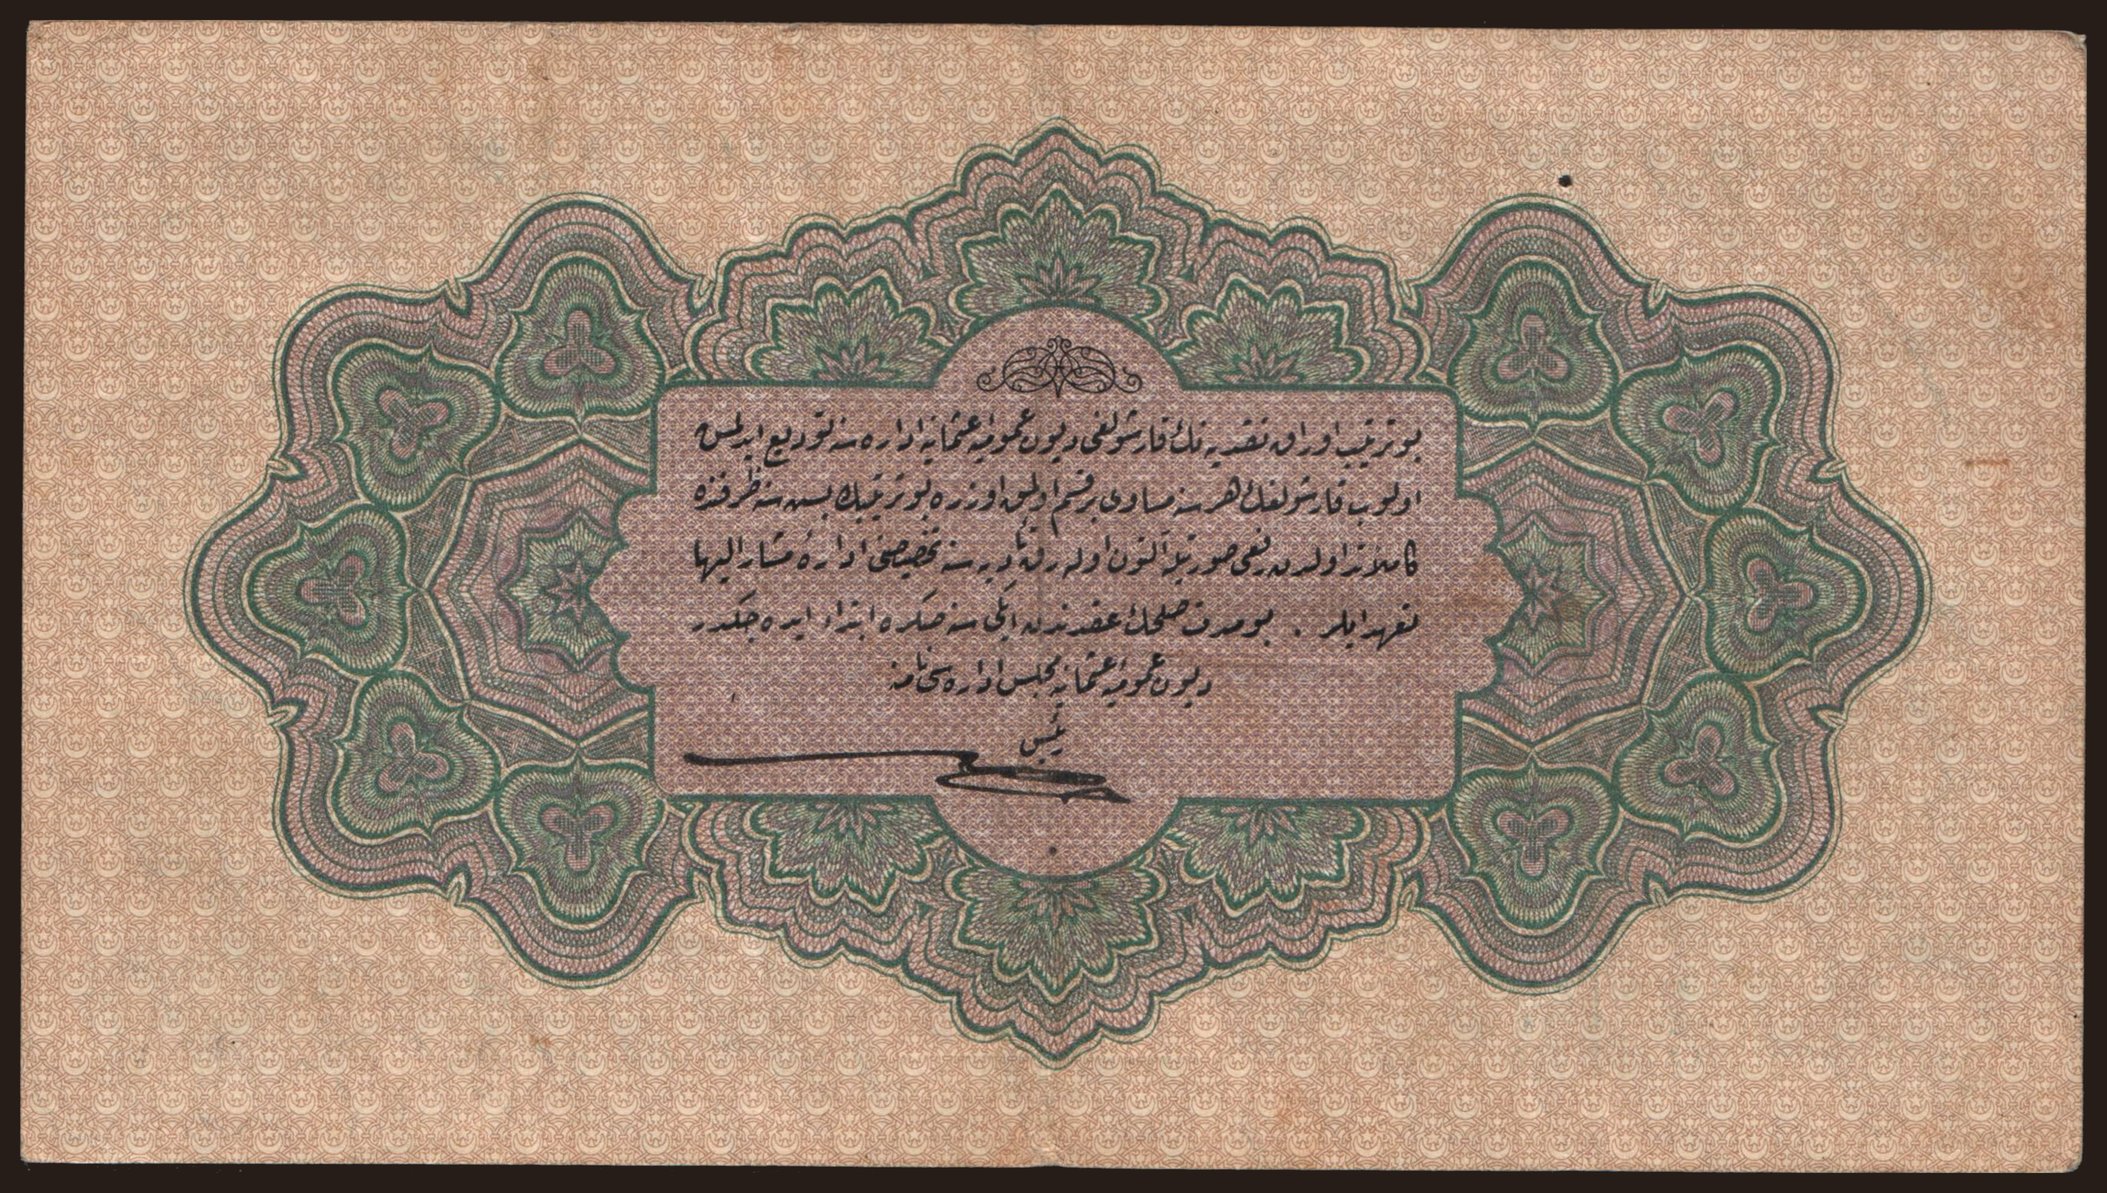 بو ترتیب اوراق نقدیه نك قارشولغی دیون عمومیهٔ عثمانیه اداره سنه تودیع ایدلمش
اولوب قارشولغك هر سنه مساوی بر قسم اولمق اوزره بو ترتیبك بش سنه ظرفنده
كاملاً تداولدن رفعی صورتیله آلتون اوله رق تأدیه سنه تخصیصنی ادارهٔ مشار الیها
تعهد ایلر . بو مدت صلحك عقدندن ایكی سنه صكره ابتدا ایده جكدر
دیون عمومیهٔ عثمانیه مجلس اداره سی نامنه
رئیس